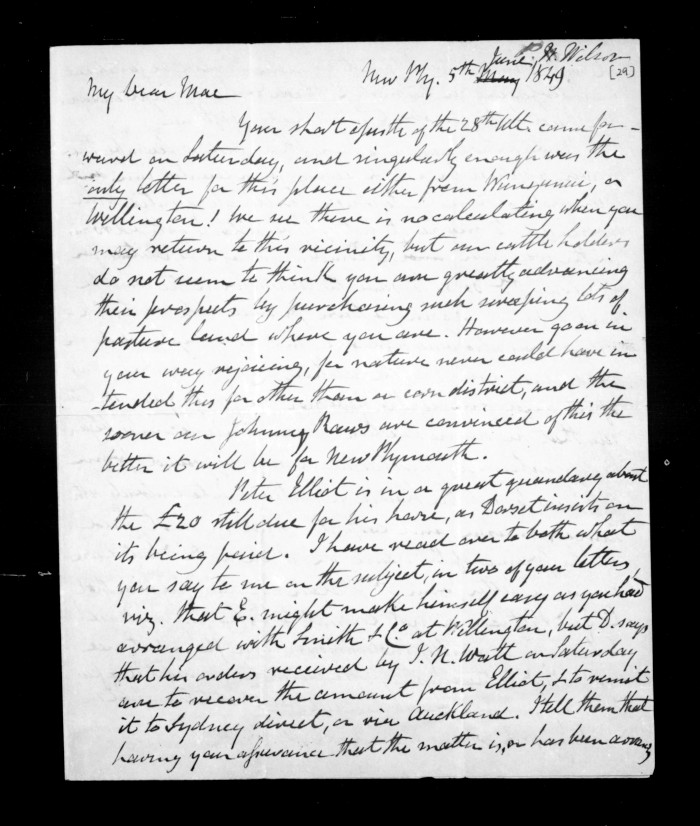 P. Wilson
[29]
New Ply. 5th May June 1849.
My Dear Mac
Your short epistle of the 28th Ulto. came for-
ward on Saturday, and singularly enough was the
only letter for this place either from Wanganui, or
Wellington! We see there is no calculating when you
may return to this vicinity, but our cattle holders
do not seem to think you are greatly advancing
their prospects by purchasing such sweeping lots of
pasture land where you are. However go on in
your way rejoicing, for nature never could have in
-tended this for other than a corn district, and the
sooner our Johnny Raws are convinced of this the
better it will be for New Plymouth.
Peter Elliot is in a great quandary about
the £20 still due for his horse, as Dorset insists on
its being paid. I have read over to both what
you say to me on the subject, in two of your letters,
viz. that E. might make himself easy as you had
arranged with Smith & Co at Wellington, but D. says
that his orders received by I. N. Watt on Saturday
are to recover the amount from Elliot, & to remit
it to Sydney direct, or via Auckland. I tell them that
having your assurance that the matter is, or has been arrang